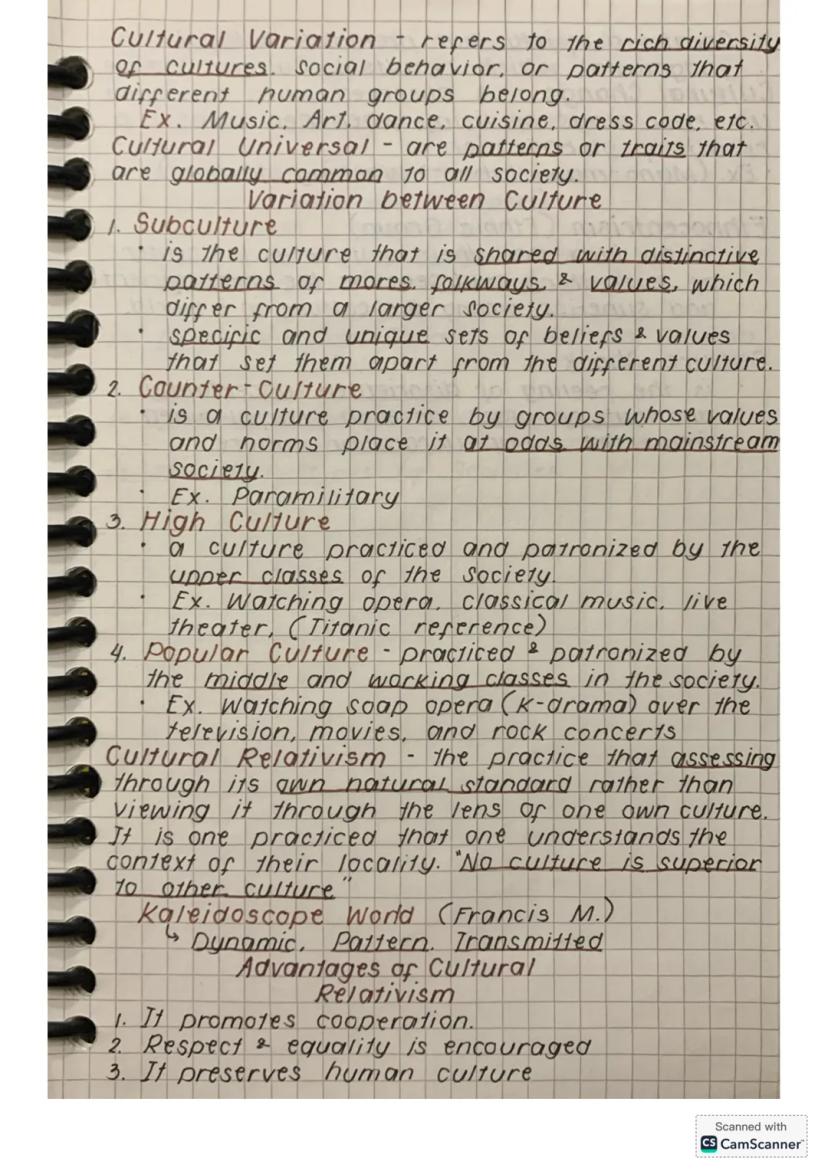 Cultural Variation - refers to the rich diversity
of cultures, social behavior, or patterns that
different human groups belong.
Ex. Music, Art, dance, cuisine, dress code, etc.
Cultural Universal - are patterns or traits that
are globally common to all society.
Variation between Culture
1. Subculture
• is the culture that is shared with distinctive
patterns of mores, folkways, & values, which
differ from a larger society.
• specific and unique sets of beliefs & values
that set them apart from the different culture.
2. Counter-Culture
• is a culture practice by groups whose values
and norms place it at odds with mainstream
society.
• Ex. Paramilitary
3. High Culture
• a culture practiced and patronized by the
upper classes of the society.
• Ex. Watching opera, classical music, live
theater, (Titanic reference)
4. Popular Culture - practiced & patronized by
the middle and working classes in the society.
• Ex. Watching soap opera (K-drama) over the
television, movies, and rock concerts
Cultural Relativism - the practice that assessing
through its own natural standard rather than
viewing it through the lens of one own culture.
It is one practiced that one understands the
context of their locality. "No culture is superior
to other culture"
Kaleidoscope World (Francis M.)
↳ Dynamic, Pattern, Transmitted
Advantages of Cultural
Relativism
1. It promotes cooperation.
2. Respect & equality is encouraged
3. It preserves human culture
Scanned with
CS CamScanner